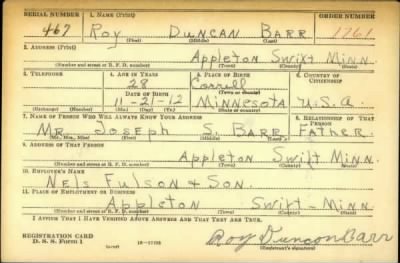 SERIAL NUMBER 1. NAME (Print) ORDER NUMBER
467 Roy DUNCAN BARR 1761
(First) (Middle) (Last)
2. ADDRESS (Print)
Appleton Swift Minn
(Number and street or R. F. D. number) (Town) (County) (State)
3. TELEPHONE 4. AGE IN YEARS 5. PLACE OF BIRTH 6. COUNTRY OF CITIZENSHIP
28 Correll
DATE OF BIRTH (Town or county)
11-21-12 Minnesota U.S.A.
(Exchange) (Number) (Mo.) (Day) (Yr.) (State or country)
7. NAME OF PERSON WHO WILL ALWAYS KNOW YOUR ADDRESS 8. RELATIONSHIP OF THAT PERSON
Mr. Joseph S. BARR Father
(Mr., Mrs., Miss) (First) (Middle) (Last)
9. ADDRESS OF THAT PERSON
Appleton Swift Minn.
(Number and street or R. F. D. number) (Town) (County) (State)
10. EMPLOYER'S NAME
Nels Fulson & Son.
11. PLACE OF EMPLOYMENT OR BUSINESS
Appleton Swift-Minn
(Number and street or R. F. D. number) (Town) (County) (State)
I AFFIRM THAT I HAVE VERIFIED ABOVE ANSWERS AND THAT THEY ARE TRUE.
REGISTRATION CARD
D. S. S. Form 1 Roy Duncan Barr
(Registrant's signature)